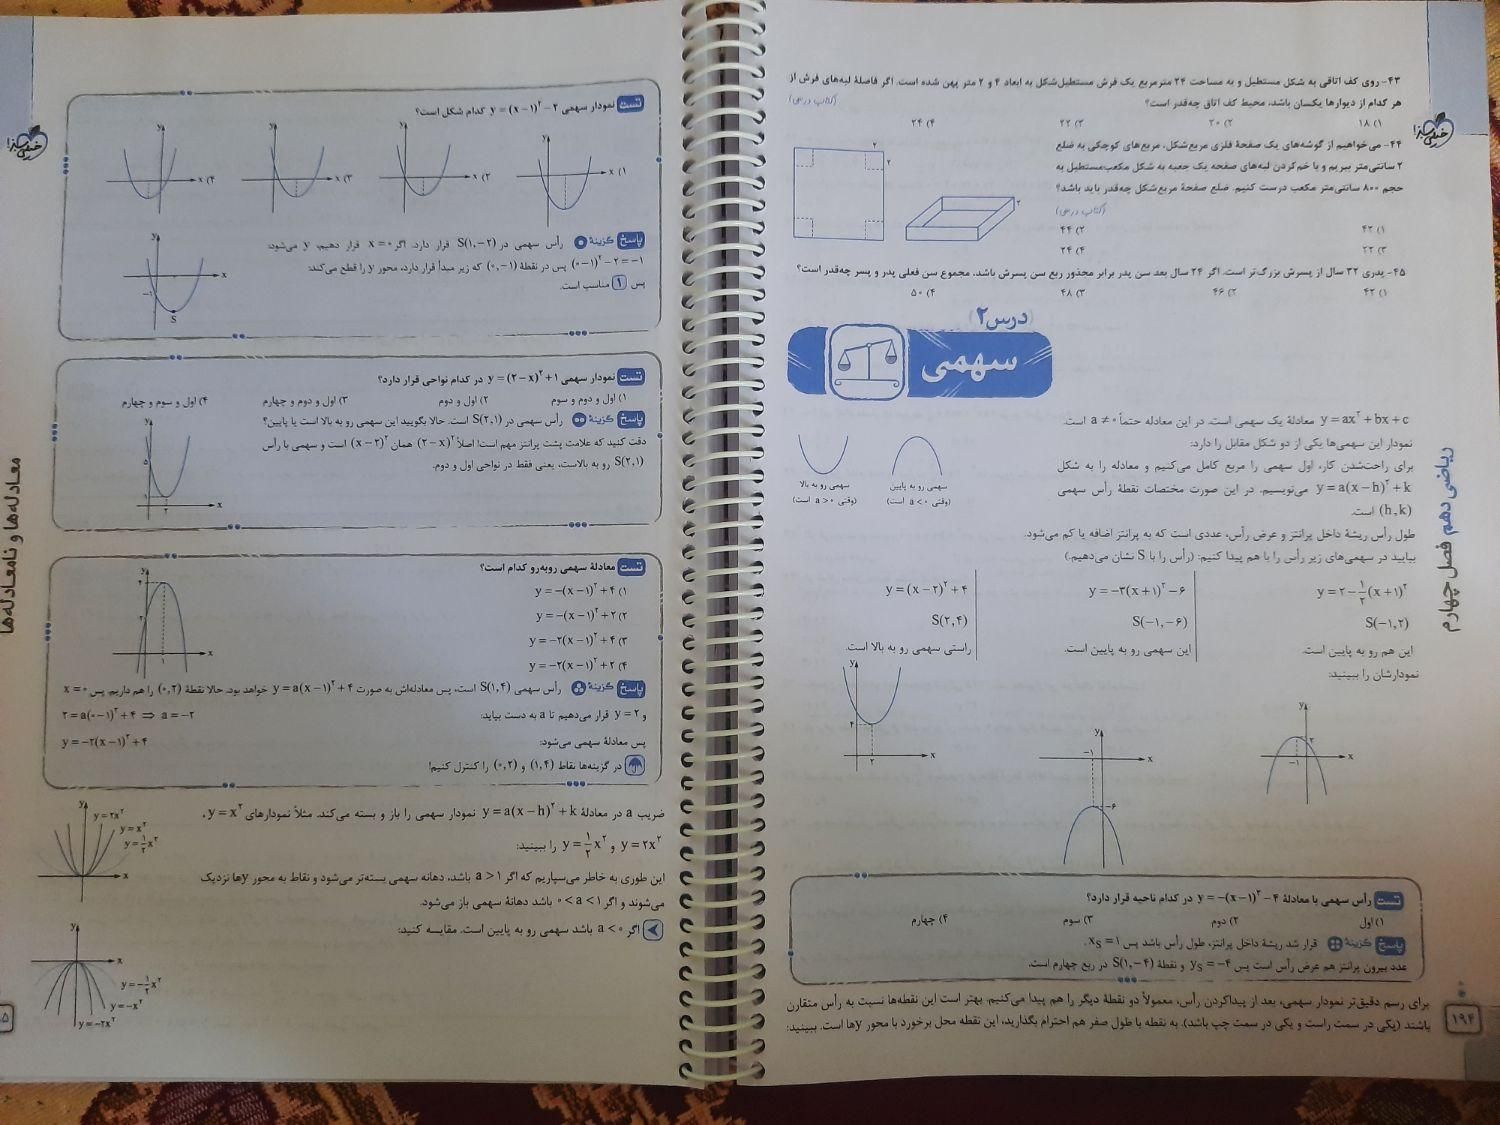 ۴۳- روی کف اتاقی به شکل مستطیل و به مساحت ۲۴ مترمربع یک فرش مستطیل‌شکل به ابعاد ۴ و ۲ متر پهن شده است. اگر فاصلهٔ لبه‌های فرش از
هر کدام از دیوارها یکسان باشد، محیط کف اتاق چه‌قدر است؟ (کتاب درسی)
۱) ۱۸ ۲) ۲۰ ۳) ۲۲ ۴) ۲۴
۴۴- می‌خواهیم از گوشه‌های یک صفحهٔ فلزی مربع‌شکل، مربع‌های کوچکی به ضلع
۲ سانتی‌متر ببریم و با خم‌کردن لبه‌های صفحه یک جعبه به شکل مکعب‌مستطیل به
حجم ۸۰۰ سانتی‌متر مکعب درست کنیم. ضلع صفحهٔ مربع‌شکل چه‌قدر باید باشد؟
(کتاب درسی)
۱) ۴۲ ۲) ۴۴
۳) ۲۲ ۴) ۲۴
۲
۲
۲
۴۵- پدری ۳۲ سال از پسرش بزرگ‌تر است. اگر ۲۴ سال بعد سن پدر برابر مجذور ربع سن پسرش باشد، مجموع سن فعلی پدر و پسر چه‌قدر است؟
۱) ۴۲ ۲) ۴۶ ۳) ۴۸ ۴) ۵۰
درس ۲
سهمی
y = ax² + bx + c معادلهٔ یک سهمی است. در این معادله حتماً a ≠ ۰ است.
نمودار این سهمی‌ها یکی از دو شکل مقابل را دارد:
برای راحت‌شدن کار، اول سهمی را مربع کامل می‌کنیم و معادله را به شکل
y = a(x − h)² + k می‌نویسیم. در این صورت مختصات نقطهٔ رأس سهمی
(h, k) است.
سهمی رو به پایین
(وقتی a < ۰ است)
سهمی رو به بالا
(وقتی a > ۰ است)
طول رأس ریشهٔ داخل پرانتز و عرض رأس، عددی است که به پرانتز اضافه یا کم می‌شود.
بیایید در سهمی‌های زیر رأس را با هم پیدا کنیم: (رأس را با S نشان می‌دهیم.)
y = ۲ − ۱/۲(x + ۱)² y = −۳(x + ۱)² − ۶ y = (x − ۲)² + ۴
S(−۱, ۲) S(−۱, −۶) S(۲, ۴)
این هم رو به پایین است. این سهمی رو به پایین است. راستی سهمی رو به بالا است.
نمودارشان را ببینید:
y
x
۲
−۱
y
x
−۱
−۶
y
x
۴
۲
تست رأس سهمی با معادلهٔ y = −(x − ۱)² − ۴ در کدام ناحیه قرار دارد؟
۱) اول ۲) دوم ۳) سوم ۴) چهارم
پاسخ گزینهٔ قرار شد ریشهٔ داخل پرانتز، طول رأس باشد پس xS = ۱.
عدد بیرون پرانتز هم عرض رأس است پس yS = −۴ و نقطهٔ S(۱, −۴) در ربع چهارم است.
برای رسم دقیق‌تر نمودار سهمی، بعد از پیداکردن رأس، معمولاً دو نقطهٔ دیگر را هم پیدا می‌کنیم. بهتر است این نقطه‌ها نسبت به رأس متقارن
باشند (یکی در سمت راست و یکی در سمت چپ باشد). به نقطه با طول صفر هم احترام بگذارید، این نقطه محل برخورد با محور yها است. ببینید:
ریاضی دهم فصل چهارم
۱۹۴
خیلی سبز
تست نمودار سهمی y = (x − ۱)² − ۲ کدام شکل است؟
۱) x y
۲) x y
۳) x y
۴) x y
پاسخ گزینهٔ رأس سهمی در S(۱, −۲) قرار دارد. اگر x = ۰ قرار دهیم، y می‌شود:
(۰ − ۱)² − ۲ = −۱ پس در نقطهٔ (۰, −۱) که زیر مبدأ قرار دارد، محور y را قطع می‌کند:
پس ۱ مناسب است.
y
x
−۱
S
تست نمودار سهمی y = (۲ − x)² + ۱ در کدام نواحی قرار دارد؟
۱) اول و دوم و سوم ۲) اول و دوم ۳) اول و دوم و چهارم ۴) اول و سوم و چهارم
پاسخ گزینهٔ رأس سهمی در S(۲, ۱) است. حالا بگویید این سهمی رو به بالا است یا پایین؟
دقت کنید که علامت پشت پرانتز مهم است! اصلاً (۲ − x)² همان (x − ۲)² است و سهمی با رأس
S(۲, ۱) رو به بالاست، یعنی فقط در نواحی اول و دوم.
y
۵
۱
۲
x
تست معادلهٔ سهمی روبه‌رو کدام است؟
۱) y = −(x − ۱)² + ۴
۲) y = −(x − ۱)² + ۲
۳) y = −۲(x − ۱)² + ۴
۴) y = −۲(x − ۱)² + ۲
y
۴
۲
۱
x
پاسخ گزینهٔ رأس سهمی S(۱, ۴) است، پس معادله‌اش به صورت y = a(x − ۱)² + ۴ خواهد بود. حالا نقطهٔ (۰, ۲) را هم داریم. پس x = ۰
و y = ۲ قرار می‌دهیم تا a به دست بیاید: ۲ = a(۰ − ۱)² + ۴ ⇒ a = −۲
پس معادلهٔ سهمی می‌شود: y = −۲(x − ۱)² + ۴
در گزینه‌ها نقاط (۱, ۴) و (۰, ۲) را کنترل کنیم!
ضریب a در معادلهٔ y = a(x − h)² + k نمودار سهمی را باز و بسته می‌کند. مثلاً نمودارهای y = x²،
y = ۲x² و y = ۱/۲x² را ببینید:
این طوری به خاطر می‌سپاریم که اگر a > ۱ باشد، دهانه سهمی بسته‌تر می‌شود و نقاط به محور yها نزدیک
می‌شوند و اگر ۰ < a < ۱ باشد دهانهٔ سهمی باز می‌شود.
اگر a < ۰ باشد سهمی رو به پایین است. مقایسه کنید:
y
y = ۲x²
y = x²
y = ۱/۲x²
x
y
x
y = −۱/۲x²
y = −x²
y = −۲x²
معادله‌ها و نامعادله‌ها
خیلی سبز